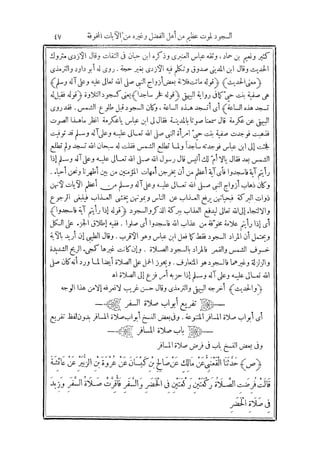 السجود لموت عظيم من أهل الفضل وغيره من الآيات المخوفة ٤٧
كثير ونعيم بن حماد. وثقه عباس العنبرى وذكره ابن حبان فى الثقات وقال الأزدى متروك
الحديث وقال ابن المدينى صدوق وتكلم فيه الأزدى بغير حجة. روى له أبو داود والترمذى
﴿معنى الحديث﴾ ﴿قوله ماتت فلانة بعض أزواج النبى صلى الله تعالى عليه وعلى آله وسلم﴾
هى صفية بنت حيى كما فى رواية البيهقى ﴿قوله فخر ساجدا﴾ يعنى كسجود التلاوة ﴿قوله فقيل له
تسجد هذه الساعة﴾ أى أتسجد هذه الساعة. وكان السجود قبل طلوع الشمس. فقد روى
البيهقى عن عكرمة قال سمعنا صوتا بالمدينة فقال لى ابن عباس ياعكرمة انظر ماهذا الصوت
فذهبت فوجدت صفية بنت حيى امرأة النبى صلى الله تعالى عليه وعلى آله وسلم قد توفيت
فجئت إلى ابن عباس فوجدته ساجدا ولما تطلع الشمس فقلت له سبحان الله تسجد ولم تطلع
الشمس بعد فقال يالا أم لك أليس قال رسول الله صلى الله تعالى عليه وعلى آله وسلم إذا
رأيتم آية فاسجدوا فأى آية أعظم من أن يخرجن أمهات المؤمنين من بين أظهرنا ونحن أحياء.
وكان ذهاب أزواج النبى صلى الله تعالى عليه وعلى آله وسلم من أعظم الآيات لأنهن
ذوات البركة فبحياتهن يرفع العذاب عن الناس وبموتهن يخشى العذاب فينبغى الرجوع
والالتجاء إلى الله تعالى ليدفع العذاب ببركة الذكر والسجود ﴿قوله إذا رأيتم آية فاسجدوا﴾
أى إذا رأيتم علامة مخوفة من عذاب الله فاسجدوا أى صلوا. ففيه إطلاق الجزء على الكل
ويحتمل أن المراد السجود فقط كما فعل ابن عباس وهو الأقرب. وقال الطيبى إن أريد بالآية
خسوف الشمس والقمر فالمراد بالسجود الصلاة. وإن كانت غيرها كمجىء الريح الشديدة
والزلزلة وغيرهما فالسجود هو المتعارف. ويجوز الحمل على الصلاة أيضا لما ورد أنه كان صلى
الله تعالى عليه وعلى آله وسلم إذا حزبه أمر فزع إلى الصلاة اهـ
﴿والحديث﴾ أخرجه البيهقى والترمذى وقال حسن غريب لانعرفه إلا من هذا الوجه
تفريع أبواب صلاة السفر
أى أبواب صلاة المسافر المتنوعة. وفى بعض النسخ أبواب صلاة المسافر بدون لفظ تفريع
باب صلاة المسافر
وفى بعض النسخ باب فى فرض صلاة المسافر
﴿ص﴾ حَدَّثَنَا الْقَعْنَبِىُّ عَنْ مَالِكٍ عَنْ صَالِحِ بْنِ كَيْسَانَ عَنْ عُرْوَةَ بْنِ الزُّبَيْرِ عَنْ عَائِشَةَ
قَالَتْ فُرِضَتِ الصَّلَاةُ رَكْعَتَيْنِ رَكْعَتَيْنِ فِى الْحَضَرِ وَالسَّفَرِ فَأُقِرَّتْ صَلَاةُ السَّفَرِ وَزِيدَ
فِى صَلَاةِ الْحَضَرِ